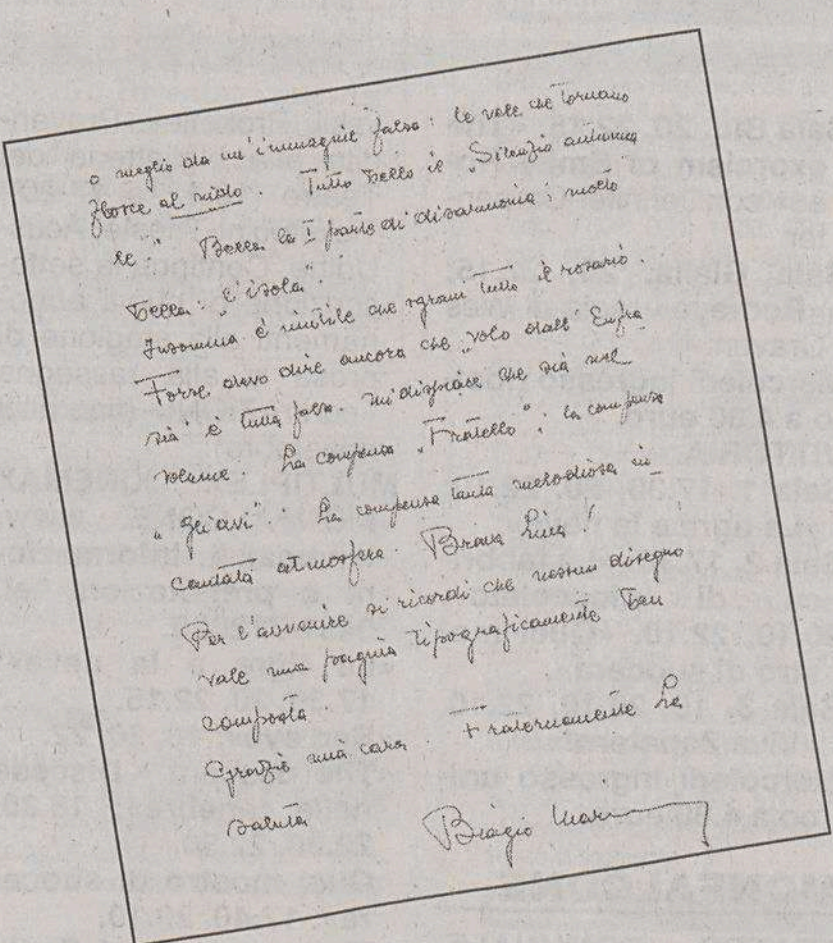 o meglio da un'immagine falsa: le vele che tornano
forse al nido. Tutto bello il „Silenzio autunna
le". Bella la I parte di disarmonia; molto
bella: „l'isola".
Insonnia è inutile che sgrani tutto il rosario.
Forse devo dire ancora che „volo dall'
è tutta falsa. Mi dispiace che sia nel
volume. La compensa „Fratello"; la compensa
„gli avi". La compensa tanta melodiosa in_
cantata atmosfera. Brava Lina!
Per l'avvenire si ricordi che nessun disegno
vale una pagina tipograficamente ben
composta.
Grazie mia cara. Fraternamente La
saluta
Biagio Marin